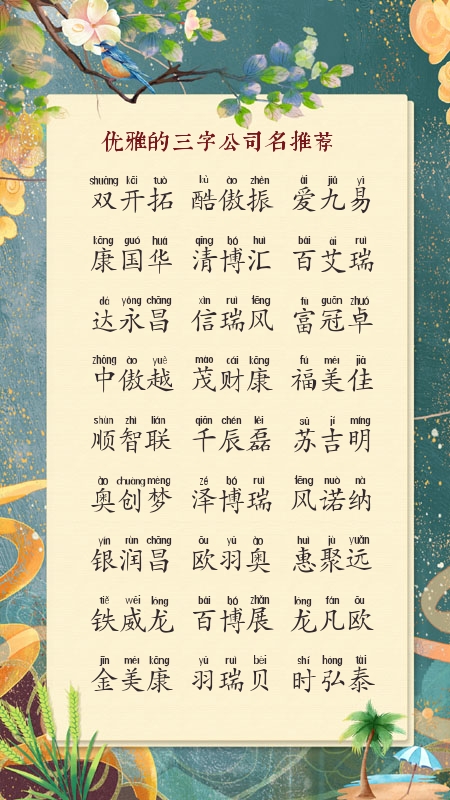 优雅的三字公司名推荐
shuāng kāi tuò kù ào zhèn ài jiǔ yì
双开拓 酷傲振 爱九易
kāng guó huá qīng bó huì bǎi ài ruì
康国华 清博汇 百艾瑞
dá yǒng chāng xìn ruì fēng fù guān zhuó
达永昌 信瑞风 富冠卓
zhōng ào yuè mào cái kāng fú měi jiā
中傲越 茂财康 福美佳
shùn zhì lián qiān chén lěi sū jí míng
顺智联 千辰磊 苏吉明
ào chuàng mèng zé bó ruì fēng nuò nà
奥创梦 泽博瑞 风诺纳
yín rùn chāng ōu yǔ ào huì jù yuǎn
银润昌 欧羽奥 惠聚远
tiě wēi lóng bǎi bó zhǎn lóng fán ōu
铁威龙 百博展 龙凡欧
jīn měi kāng yǔ ruì bèi shí hóng tài
金美康 羽瑞贝 时弘泰